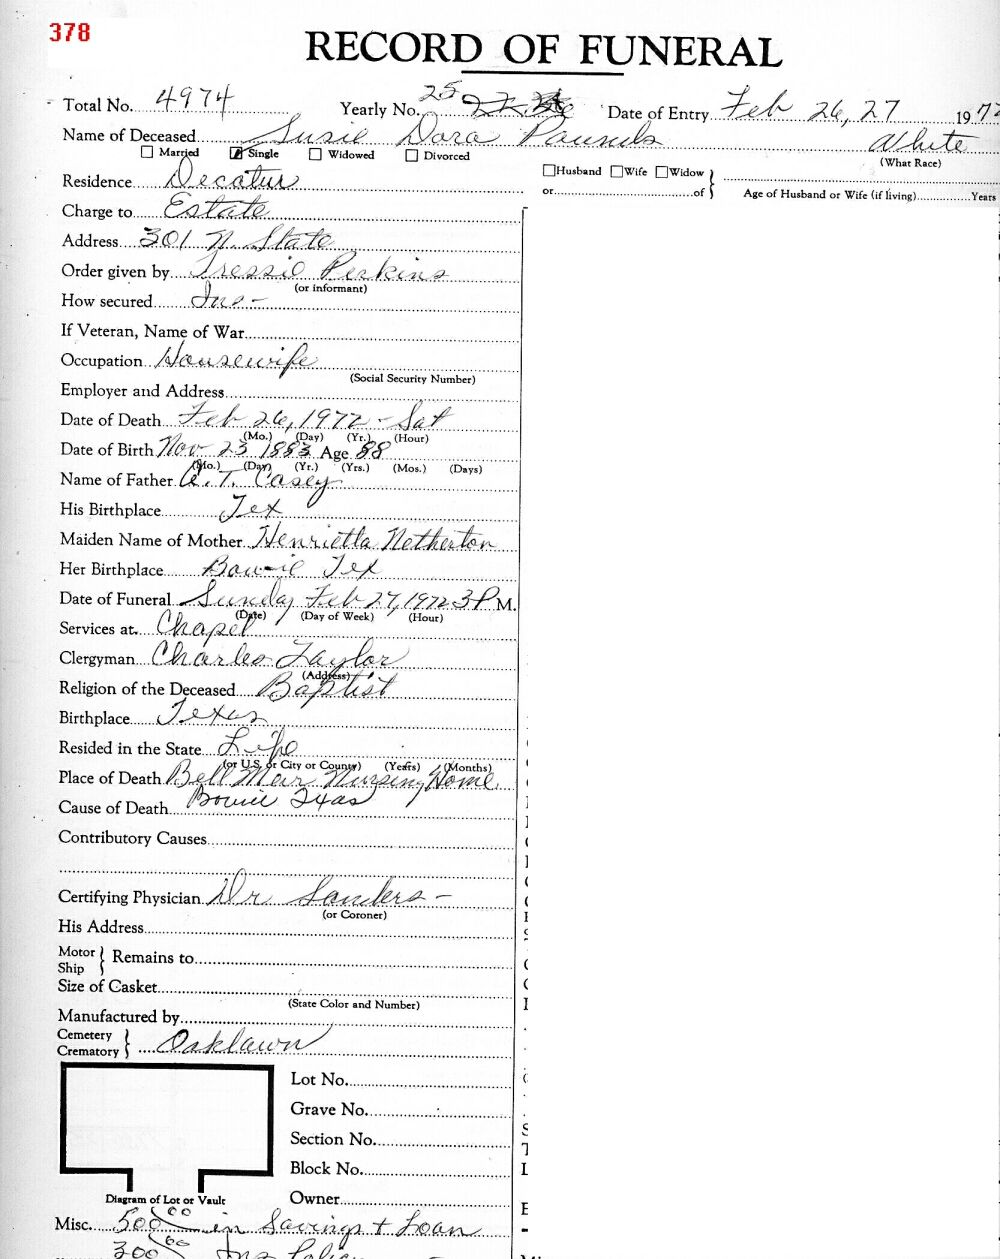 378
RECORD OF FUNERAL
Total No. 4974 Yearly No. 25 Date of Entry Feb 26, 27 197
Name of Deceased Susie Dora Pounds White
Married Single Widowed Divorced (What Race)
Husband Wife Widow
Residence Decatur or of Age of Husband or Wife (if living) Years
Charge to Estate
Address 301 N. State
Order given by Tressie Perkins
(or informant)
How secured Ins-
If Veteran, Name of War
Occupation Housewife
(Social Security Number)
Employer and Address
Date of Death Feb 26, 1972 - Sat
(Mo.) (Day) (Yr.) (Hour)
Date of Birth Nov 23 1883 Age 88
(Mo.) (Day) (Yr.) (Yrs.) (Mos.) (Days)
Name of Father A. T. Casey
His Birthplace Tex
Maiden Name of Mother Henrietta Netherton
Her Birthplace Bowie Tex
Date of Funeral Sunday Feb 27, 1972 3 P M.
(Date) (Day of Week) (Hour)
Services at Chapel
Clergyman Charles Taylor
(Address)
Religion of the Deceased Baptist
Birthplace Texas
Resided in the State Life
(or U.S. or City or County) (Years) (Months)
Place of Death Bell Meir Nursing Home
Bowie Texas
Cause of Death
Contributory Causes
Certifying Physician Dr Sanders -
(or Coroner)
His Address
Motor Ship } Remains to
Size of Casket
(State Color and Number)
Manufactured by
Cemetery Crematory } Oaklawn
Lot No.
Grave No.
Section No.
Block No.
Diagram of Lot or Vault
Owner
Misc. 500 00 in Savings + Loan
300 00 Ins